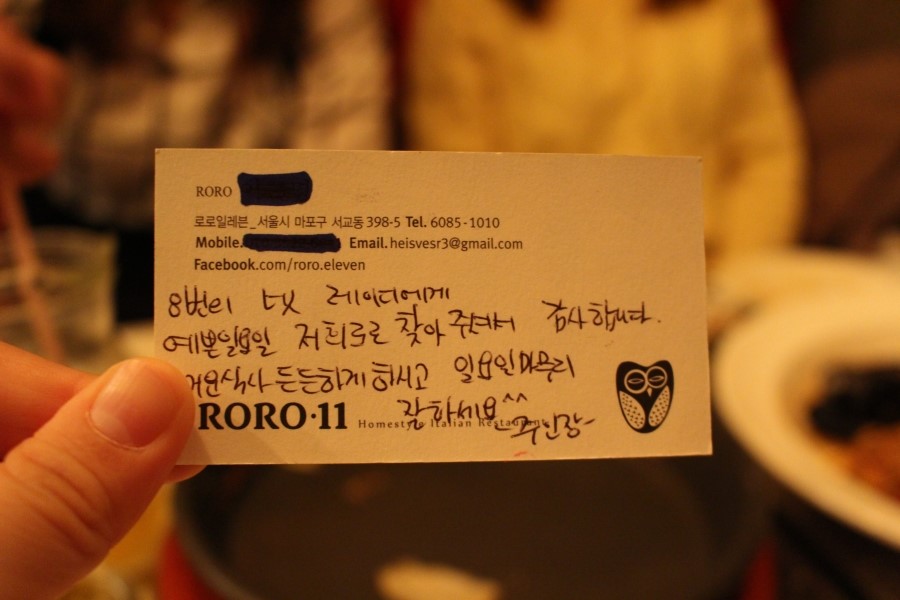 RORO
로로일레븐_서울시 마포구 서교동 398-5 Tel. 6085-1010
Mobile. Email. heisvesr3@gmail.com
Facebook.com/roro.eleven
8번의 넷 레이디에게
예쁜일요일 저희로로 찾아 주셔서 감사합니다.
식사 든든하게 하시고 일요일마무리
잘하세요^^
RORO·11 Homestyle Italian Restaurant
-주인장-